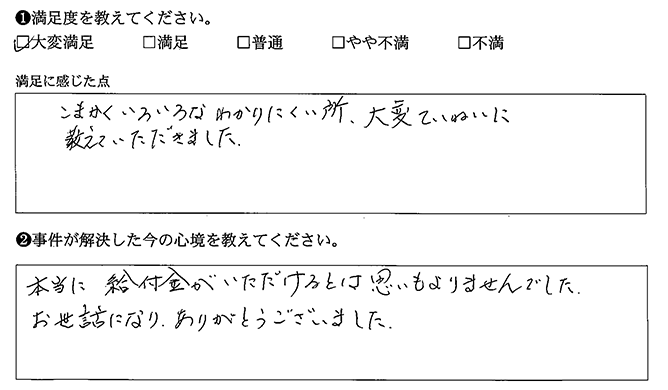 ❶満足度を教えてください。
□大変満足 □満足 □普通 □やや不満 □不満
満足に感じた点
こまかくいろいろな わかりにくい所、大変ていねいに
教えていただきました.
❷事件が解決した今の心境を教えてください。
本当に 給付金がいただけるとは 思いもよりませんでした.
お世話になり. ありがとうございました.